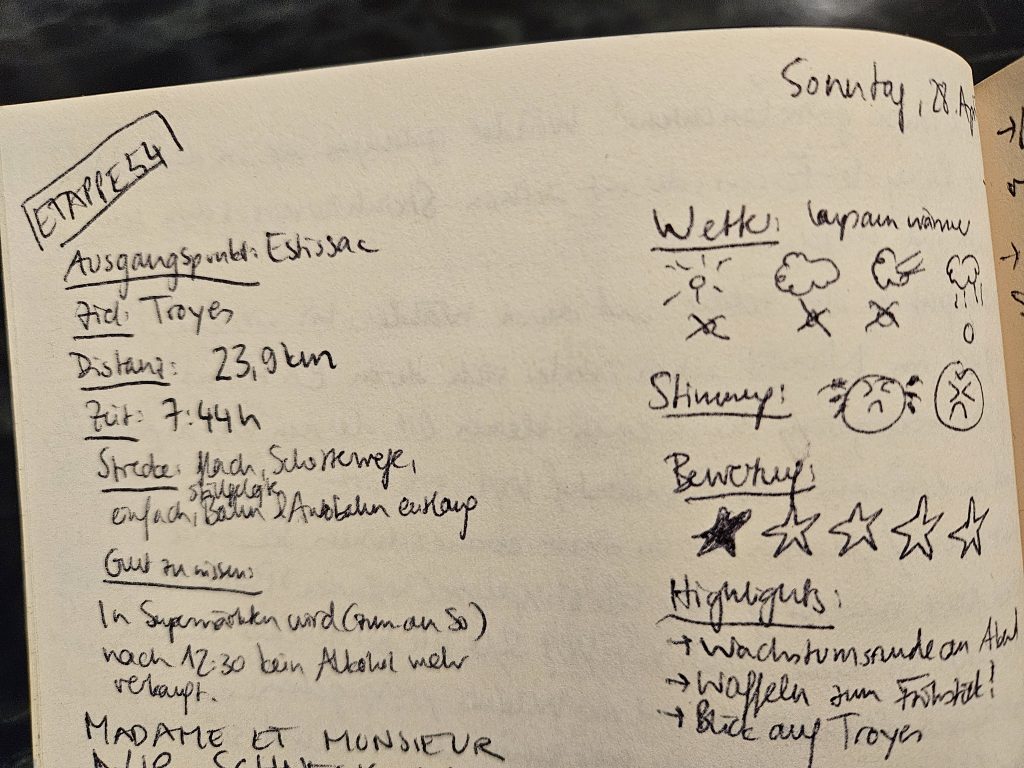 Sonntag, 28. Apr
ETAPPE 54
Ausgangspunkt: Estissac
Ziel: Troyes
Distanz: 23,9 km
Zeit: 7:44 h
Strecke: flach, Schotterwege,
stillgelegte
einfach, Bahn & Autobahn entlang
Gut zu wissen:
In Supermärkten wird (zum an So)
nach 12:30 kein Alkohol mehr
verkauft.
MADAME ET MONSIEUR
Wetter: langsam wärmer
Stimmung:
Bewertung:
Highlights:
→ Wachstumsrunde am Abend
→ Waffeln zum Frühstück!
→ Blick auf Troyes